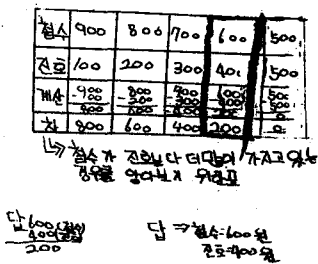 철수 900 800 700 600 500
진호 100 200 300 400 500
계산 900 800 700 600 500
-100 -200 -300 -400 -500
800 600 400 200 0
차 800 600 400 200 0
↳ 철수가 진호보다 더 많이 가지고 있는
경우를 알아보기 위한표
답 600(철수)
400(진호)
200
답 ⇒ 철수=600원
진호=400원